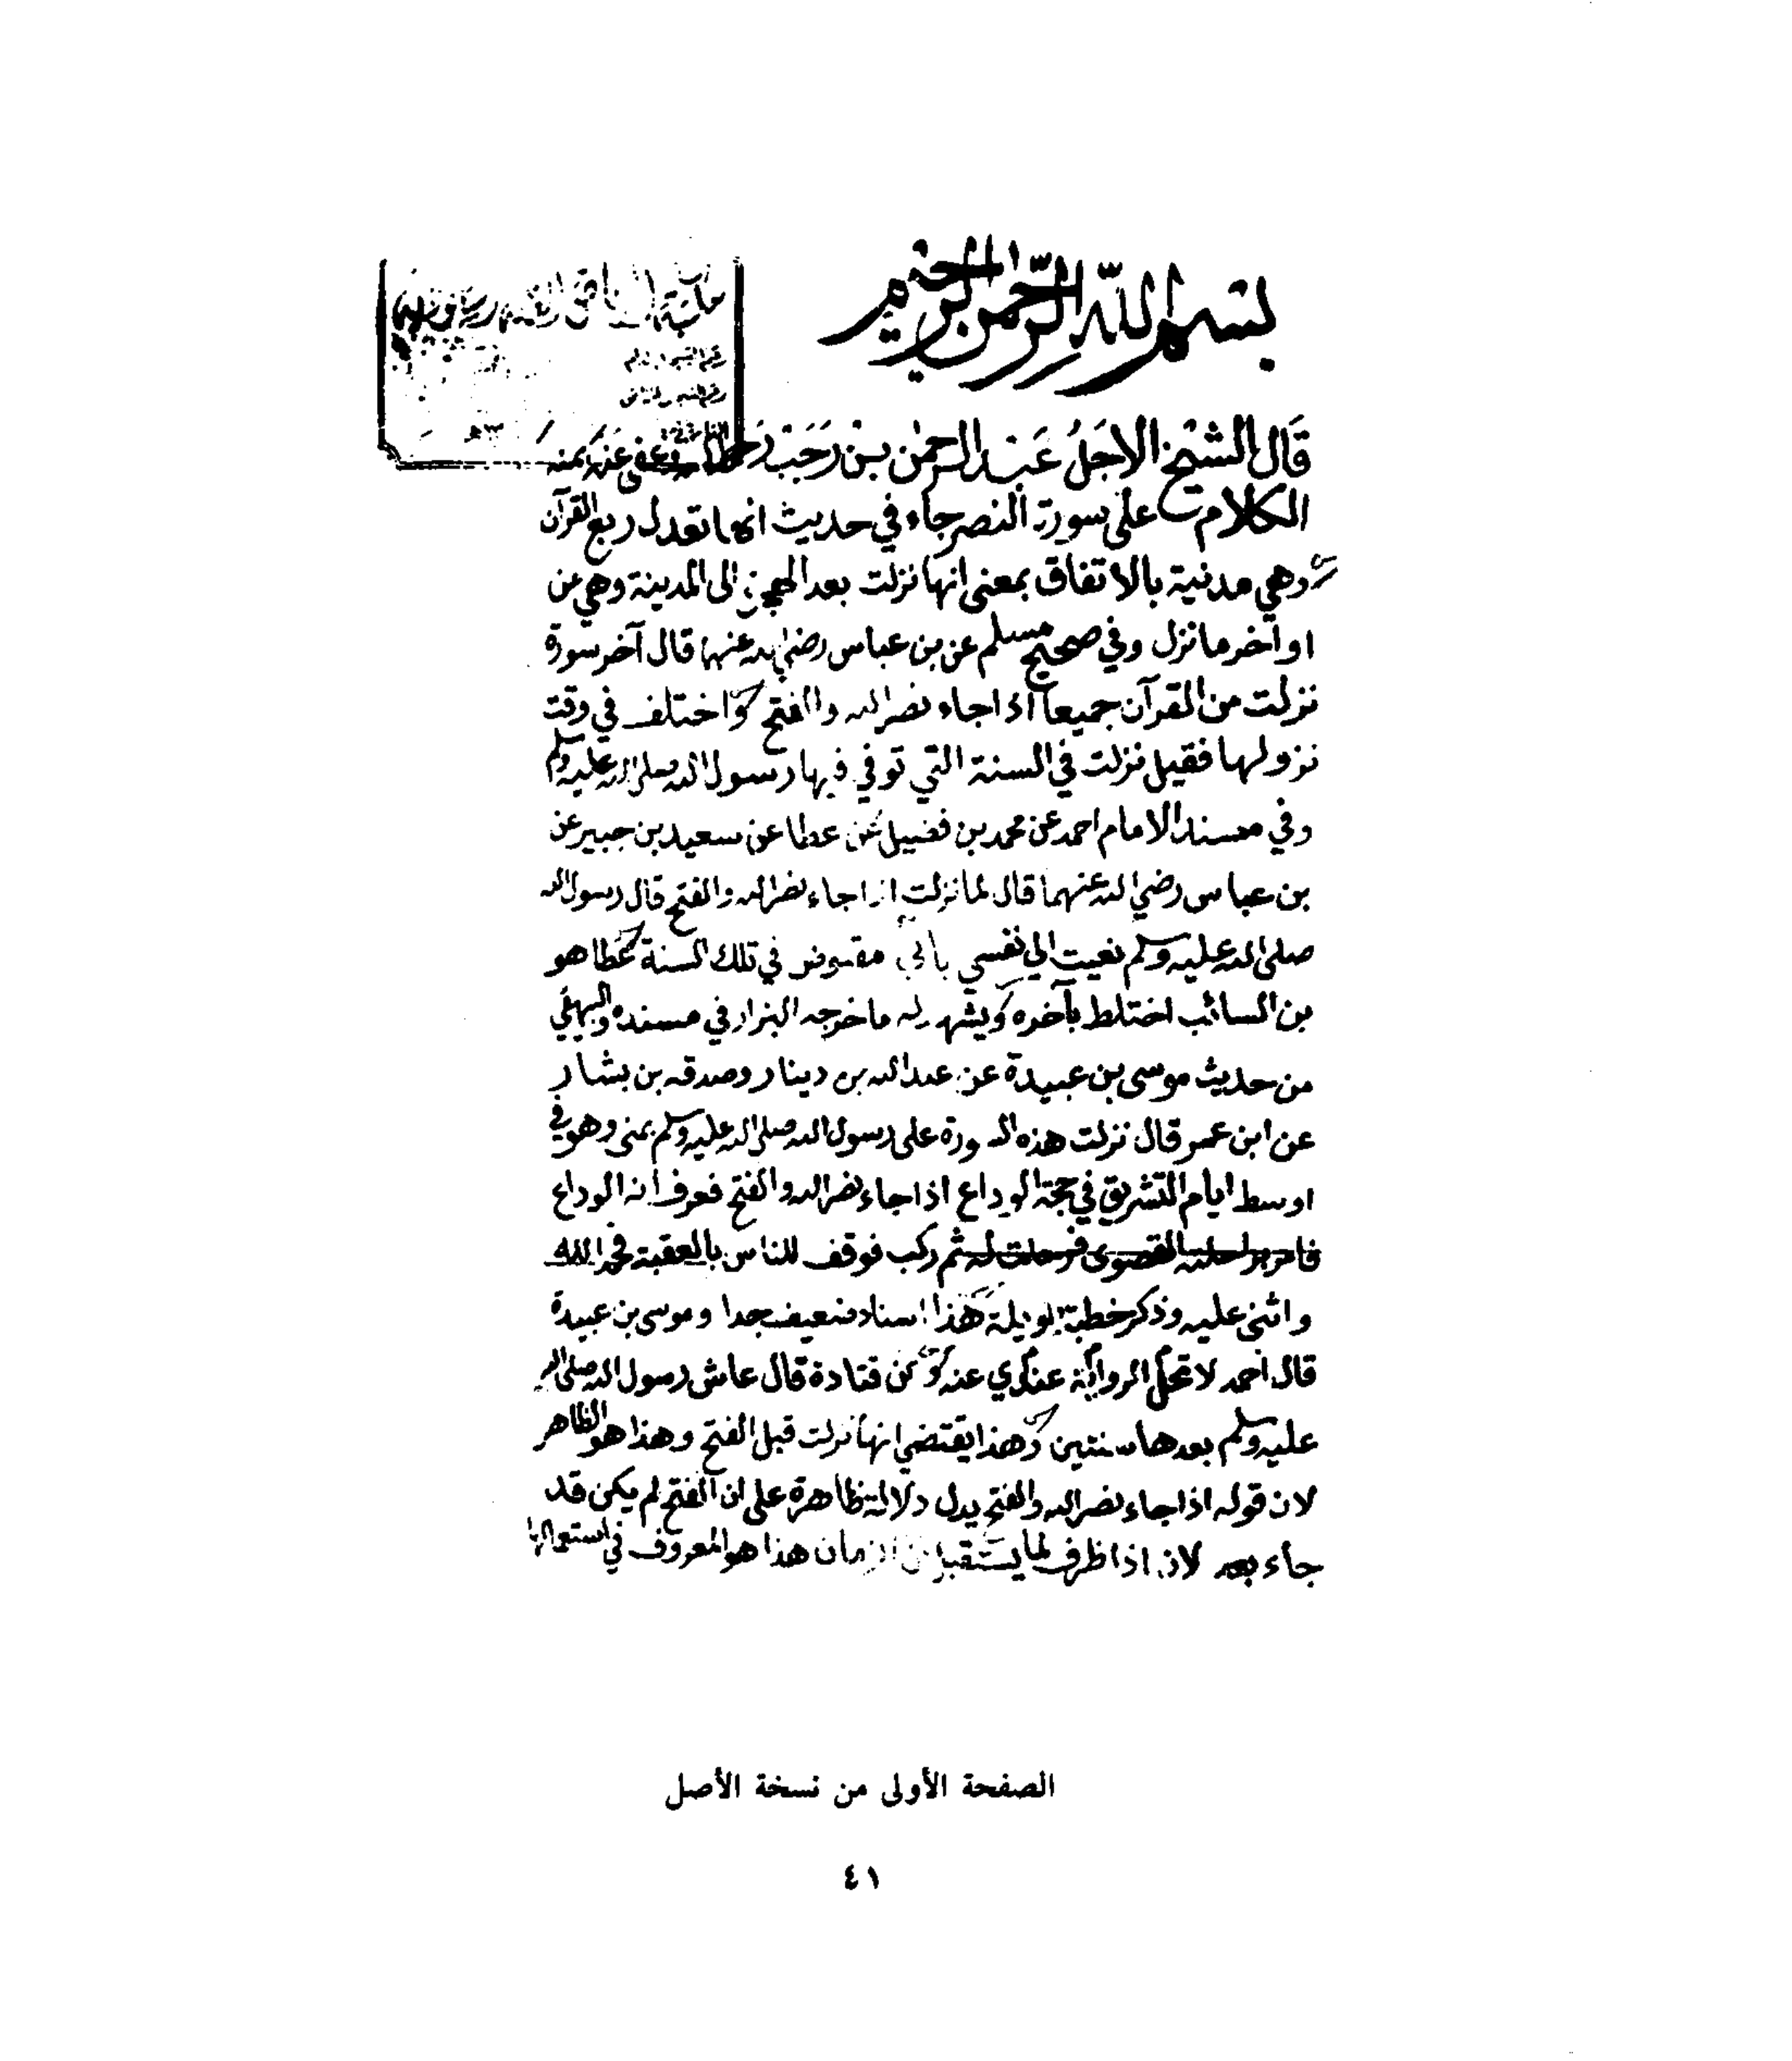 بسم الله الرحمن الرحيم
قَال الشيخ الاجَلُ عَبد الرحمن بن رَجَب رحمه الله وعفى عَنه بمنه
الكلام على سورة النصر جاء في حديث انها تعدل ربع القرآن
وهي مدنية بالاتفاق بمعنى انها نزلت بعد الهجرة الى المدينة وهي من
اواخر ما نزل وفي صحيح مسلم عن بن عباس رضي الله عنهما قال آخر سورة
نزلت من القرآن جميعا اذا جاء نصر الله والفتح واختلف في وقت
نزولها فقيل نزلت في السنة التي توفي فيها رسول الله صلى الله عليه وسلم
وفي مسند الامام احمد عن محمد بن فضيل عن عطا عن سعيد بن جبير عن
بن عباس رضي الله عنهما قال لما نزلت اذا جاء نصر الله والفتح قال رسول الله
صلى الله عليه وسلم نعيت الي نفسي باني مقبوض في تلك السنة عطا هو
بن السائب اختلط بآخره ويشهد له ما خرجه البزار في مسنده والبيهقي
من حديث موسى بن عبيدة عن عبد الله بن دينار وصدقه بن بشار
عن ابن عمر قال نزلت هذه السورة على رسول الله صلى الله عليه وسلم بمنى وهو في
اوسط ايام التشريق في حجة الوداع اذا جاء نصر الله والفتح فعرف انه الوداع
فامر براحلته القصوى فرحلت له ثم ركب فوقف للناس بالعقبة فحمد الله
واثنى عليه وذكر خطبة طويلة هذا اسناد ضعيف جدا وموسى بن عبيدة
قال احمد لا تحل الرواية عندي عنه وعن قتادة قال عاش رسول الله صلى الله
عليه وسلم بعدها سنتين وهذا يقتضي انها نزلت قبل الفتح وهذا هو الظاهر
لان قوله اذا جاء نصر الله والفتح يدل دلالة ظاهرة على ان الفتح لم يكن قد
جاء بعد لان اذا ظرف لما يستقبل من الزمان هذا هو المعروف في استعمالها
الصفحة الأولى من نسخة الأصل
٤١